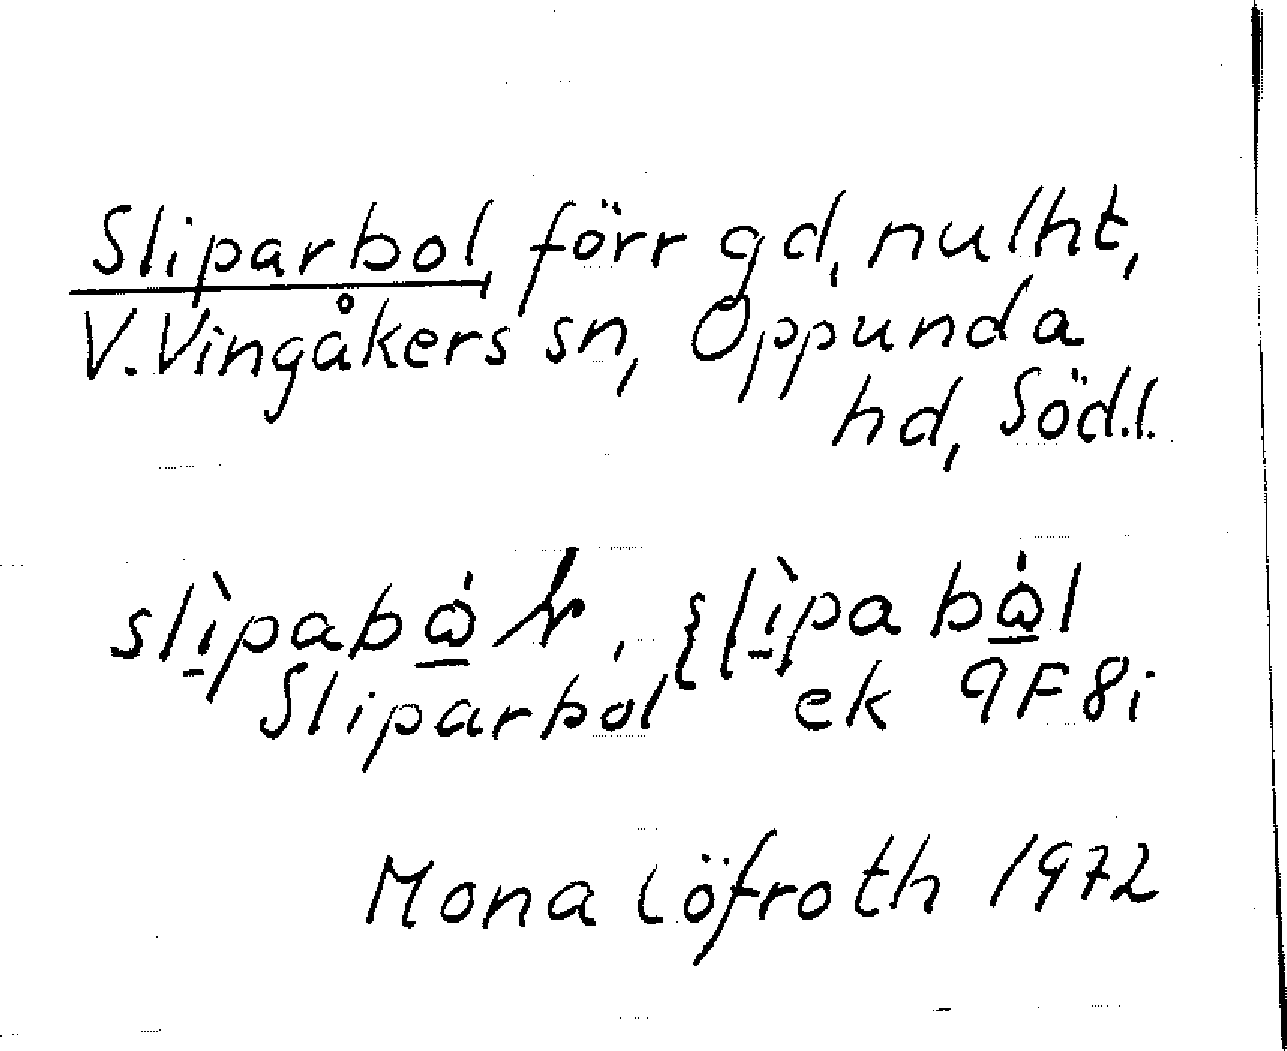 Sliparbol, förr gd, nu lht,
V. Vingåkers sn, Oppunda
hd, Södl.
Sliparbol ek 9F8i
Mona Löfroth 1972